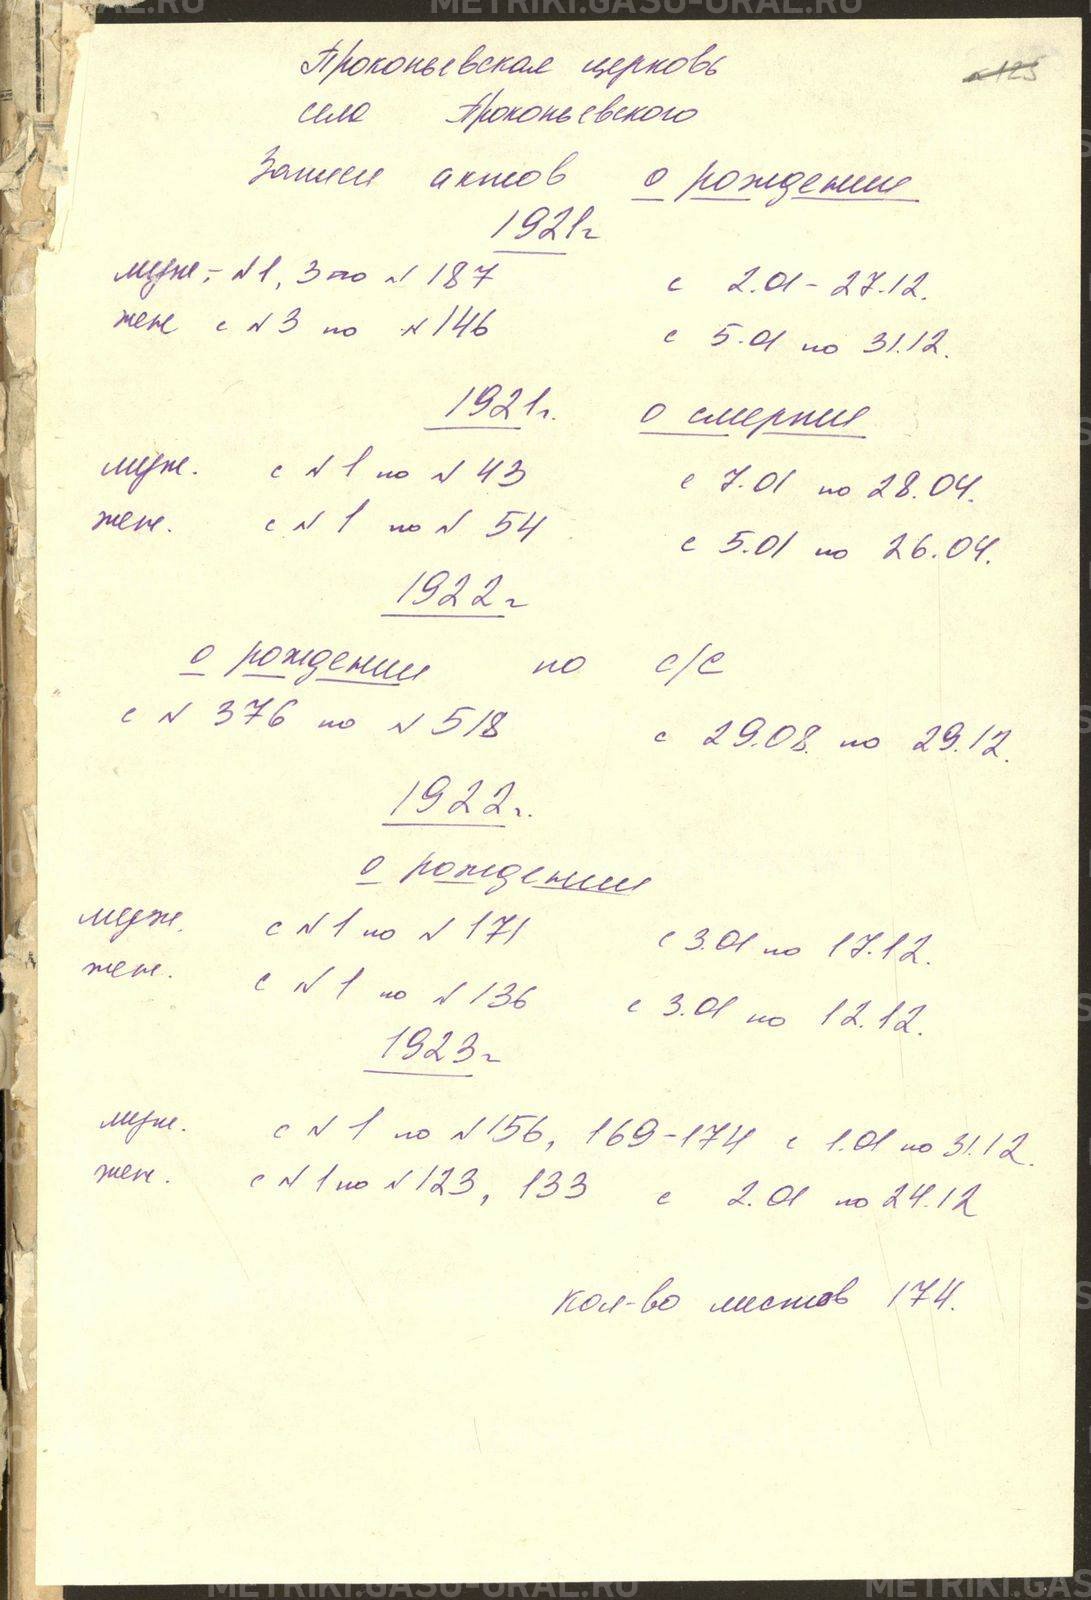 METRIKI.GASU-URAL.RU
№125
Прокопьевская церковь
села Прокопьевского
Записи актов о рождении
1921г
муж,- №1, 3 по №187 с 2.01 - 27.12.
жен с №3 по №146 с 5.01 по 31.12.
1921г. о смерти
муж. с №1 по №43 с 7.01 по 28.04.
жен. с №1 по №54 с 5.01 по 26.04.
1922г
о рождении по с/с
с №376 по №518 с 29.08. по 29.12.
1922г.
о рождении
мужж. с №1 по №171 с 3.01 по 17.12.
жен. с №1 по №136 с 3.01 по 12.12.
1923г
муж. с №1 по №156, 169-174 с 1.01 по 31.12.
жен. с №1 по №123, 133 с 2.01 по 24.12
кол-во листов 174.
METRIKI.GASU-URAL.RU METRIKI.GASU-URAL.RU